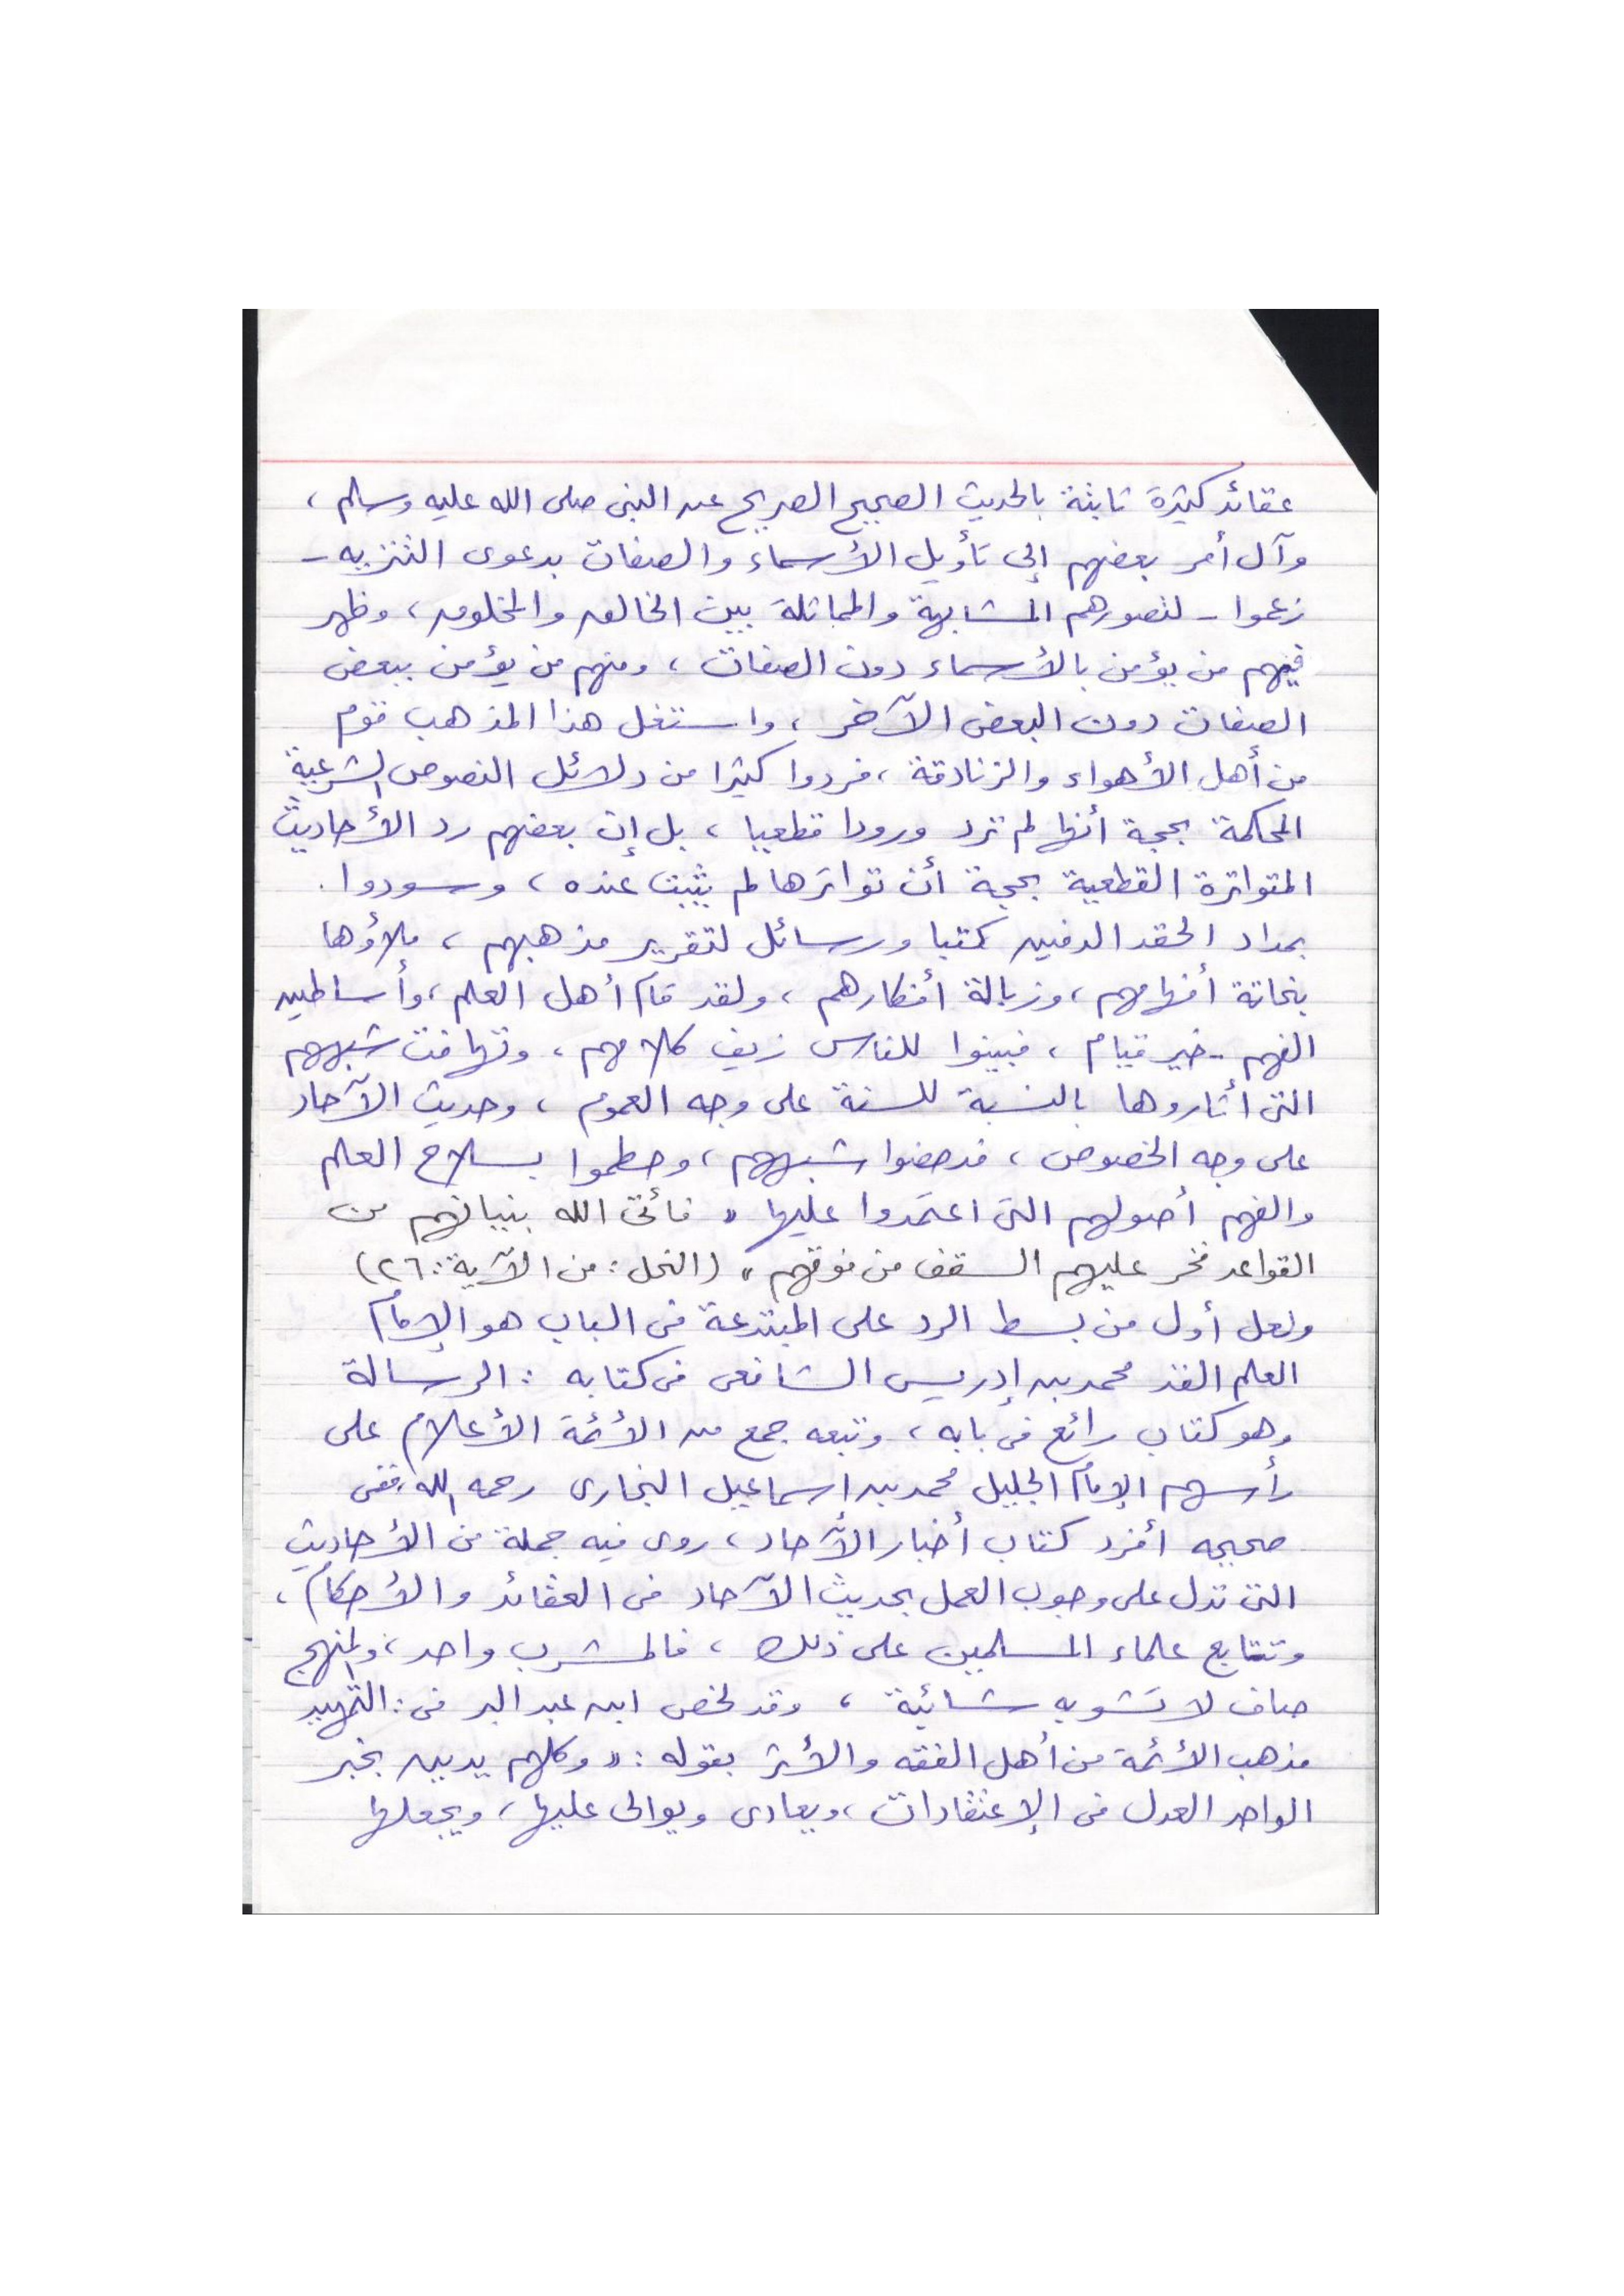 عقائد كثيرة ثابتة بالحديث الصحيح الصريح عن النبى صلى الله عليه وسلم ،
وآل أمر بعضهم إلى تأويل الأسماء والصفات بدعوى التنزيه -
زعموا - لتصورهم المشابهة والمماثلة بين الخالق والمخلوق ، وظهر
فيهم من يؤمن بالأسماء دون الصفات ، ومنهم من يؤمن ببعض
الصفات دون البعض الآخر ، واستغل هذا المذهب قوم
من أهل الأهواء والزنادقة ، فردوا كثيرا من دلائل النصوص الشرعية
المحكمة بحجة أنها لم ترد ورودا قطعيا ، بل إن بعضهم رد الأحاديث
المتواترة القطعية بحجة أن تواترها لم يثبت عنده ، وسودوا .
بمداد الحقد الدفين كتبا ورسائل لتقرير مذهبهم ، ملأوها
بنحاتة أفهامهم ، وزبالة أفكارهم ، ولقد قام أهل العلم ، وأساطين
الفهم - خير قيام ، فبينوا للناس زيف كلامهم ، وتهافت شبههم
التى أثاروها بالنسبة للسنة على وجه العموم ، وحديث الآحاد
على وجه الخصوص ، فدحضوا شبههم ، وحطموا بسلاح العلم
والفهم أصولهم التى اعتمدوا عليها " فأتى الله بنيانهم من
القواعد فخر عليهم السقف من فوقهم " (النحل : من الآية : ٢٦)
ولعل أول من بسط الرد على المبتدعة فى الباب هو الإمام
العلم الفذ محمد بن إدريس الشافعى فى كتابه : الرسالة
وهو كتاب رائع فى بابه ، وتبعه جمع من الأئمة الأعلام على
رأسهم الإمام الجليل محمد بن اسماعيل البخارى رحمه الله ، ففى
صحيحه أفرد كتاب أخبار الآحاد ، روى فيه جملة من الأحاديث
التى تدل على وجوب العمل بحديث الآحاد فى العقائد والأحكام ،
وتتابع علماء المسلمين على ذلك ، فالمشرب واحد ، والمنهج
صاف لا تشوبه شائبة ، وقد لخص ابن عبد البر فى : التمهيد
مذهب الأئمة من أهل الفقه والأثر بقوله : " وكلهم يدين بخبر
الواحد العدل فى الإعتقادات ، ويعادى ويوالى عليها ، ويجعلها